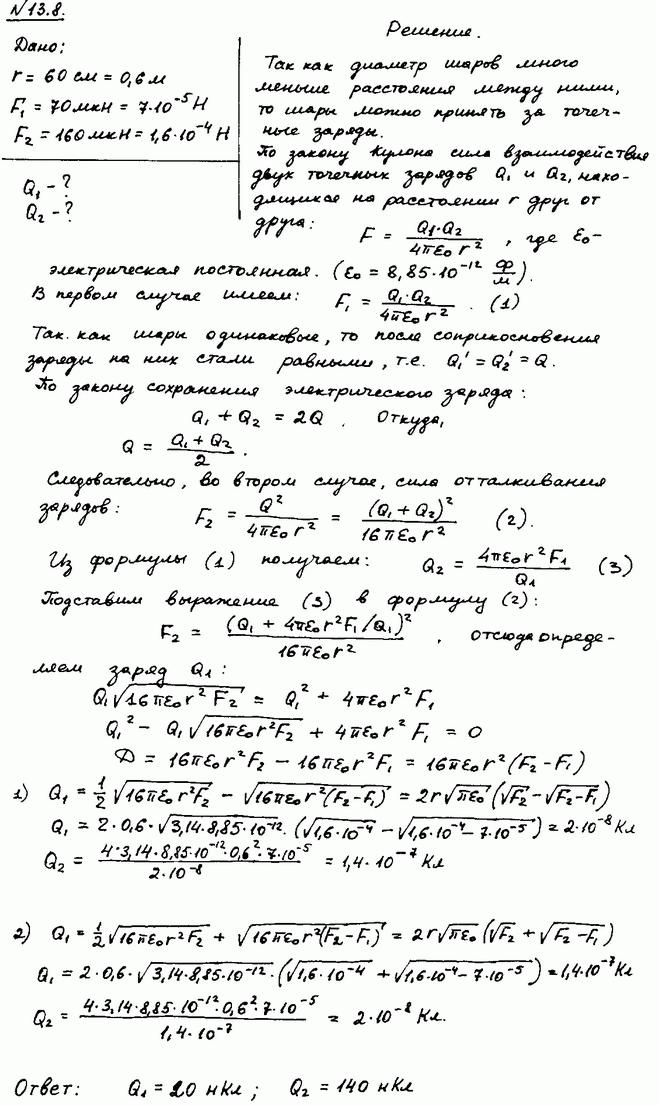 N 13.8.
Дано:
r = 60 см = 0,6 м
F₁ = 70 мкН = 7·10⁻⁵ Н
F₂ = 160 мкН = 1,6·10⁻⁴ Н
Q₁ - ?
Q₂ - ?
Решение.
Так как диаметр шаров много
меньше расстояния между ними,
то шары можно принять за точеч-
ные заряды.
По закону Кулона сила взаимодействия
двух точечных зарядов Q₁ и Q₂, нахо-
дящихся на расстоянии r друг от
друга: F = Q₁·Q₂ / 4πε₀r² , где ε₀-
электрическая постоянная. (ε₀ = 8,85·10⁻¹² Ф/м).
В первом случае имеем: F₁ = Q₁·Q₂ / 4πε₀r² . (1)
Так. как шары одинаковые, то после соприкосновения
заряды на них стали равными, т.е. Q₁' = Q₂' = Q.
По закону сохранения электрического заряда:
Q₁ + Q₂ = 2Q . Откуда,
Q = (Q₁ + Q₂) / 2 .
Следовательно, во втором случае, сила отталкивания
зарядов: F₂ = Q² / 4πε₀r² = (Q₁ + Q₂)² / 16πε₀r² (2).
Из формулы (1) получаем: Q₂ = 4πε₀r²F₁ / Q₁ (3)
Подставим выражение (3) в формулу (2):
F₂ = (Q₁ + 4πε₀r²F₁/Q₁)² / 16πε₀r² , отсюда опреде-
ляем заряд Q₁:
Q₁√16πε₀r²F₂ = Q₁² + 4πε₀r²F₁
Q₁² - Q₁√16πε₀r²F₂ + 4πε₀r²F₁ = 0
D = 16πε₀r²F₂ - 16πε₀r²F₁ = 16πε₀r²(F₂ - F₁)
1) Q₁ = 1/2 √16πε₀r²F₂ - √16πε₀r²(F₂-F₁) = 2r√πε₀ (√F₂ - √F₂-F₁)
Q₁ = 2·0,6·√3,14·8,85·10⁻¹² ·(√1,6·10⁻⁴ - √1,6·10⁻⁴ - 7·10⁻⁵) = 2·10⁻⁸ Кл
Q₂ = 4·3,14·8,85·10⁻¹²·0,6²·7·10⁻⁵ / 2·10⁻⁸ = 1,4·10⁻⁷ Кл
2) Q₁ = 1/2 √16πε₀r²F₂ + √16πε₀r²(F₂-F₁) = 2r√πε₀ (√F₂ + √F₂-F₁)
Q₁ = 2·0,6·√3,14·8,85·10⁻¹² ·(√1,6·10⁻⁴ + √1,6·10⁻⁴ - 7·10⁻⁵) = 1,4·10⁻⁷ Кл
Q₂ = 4·3,14·8,85·10⁻¹²·0,6²·7·10⁻⁵ / 1,4·10⁻⁷ = 2·10⁻⁸ Кл.
Ответ: Q₁ = 20 нКл ; Q₂ = 140 нКл